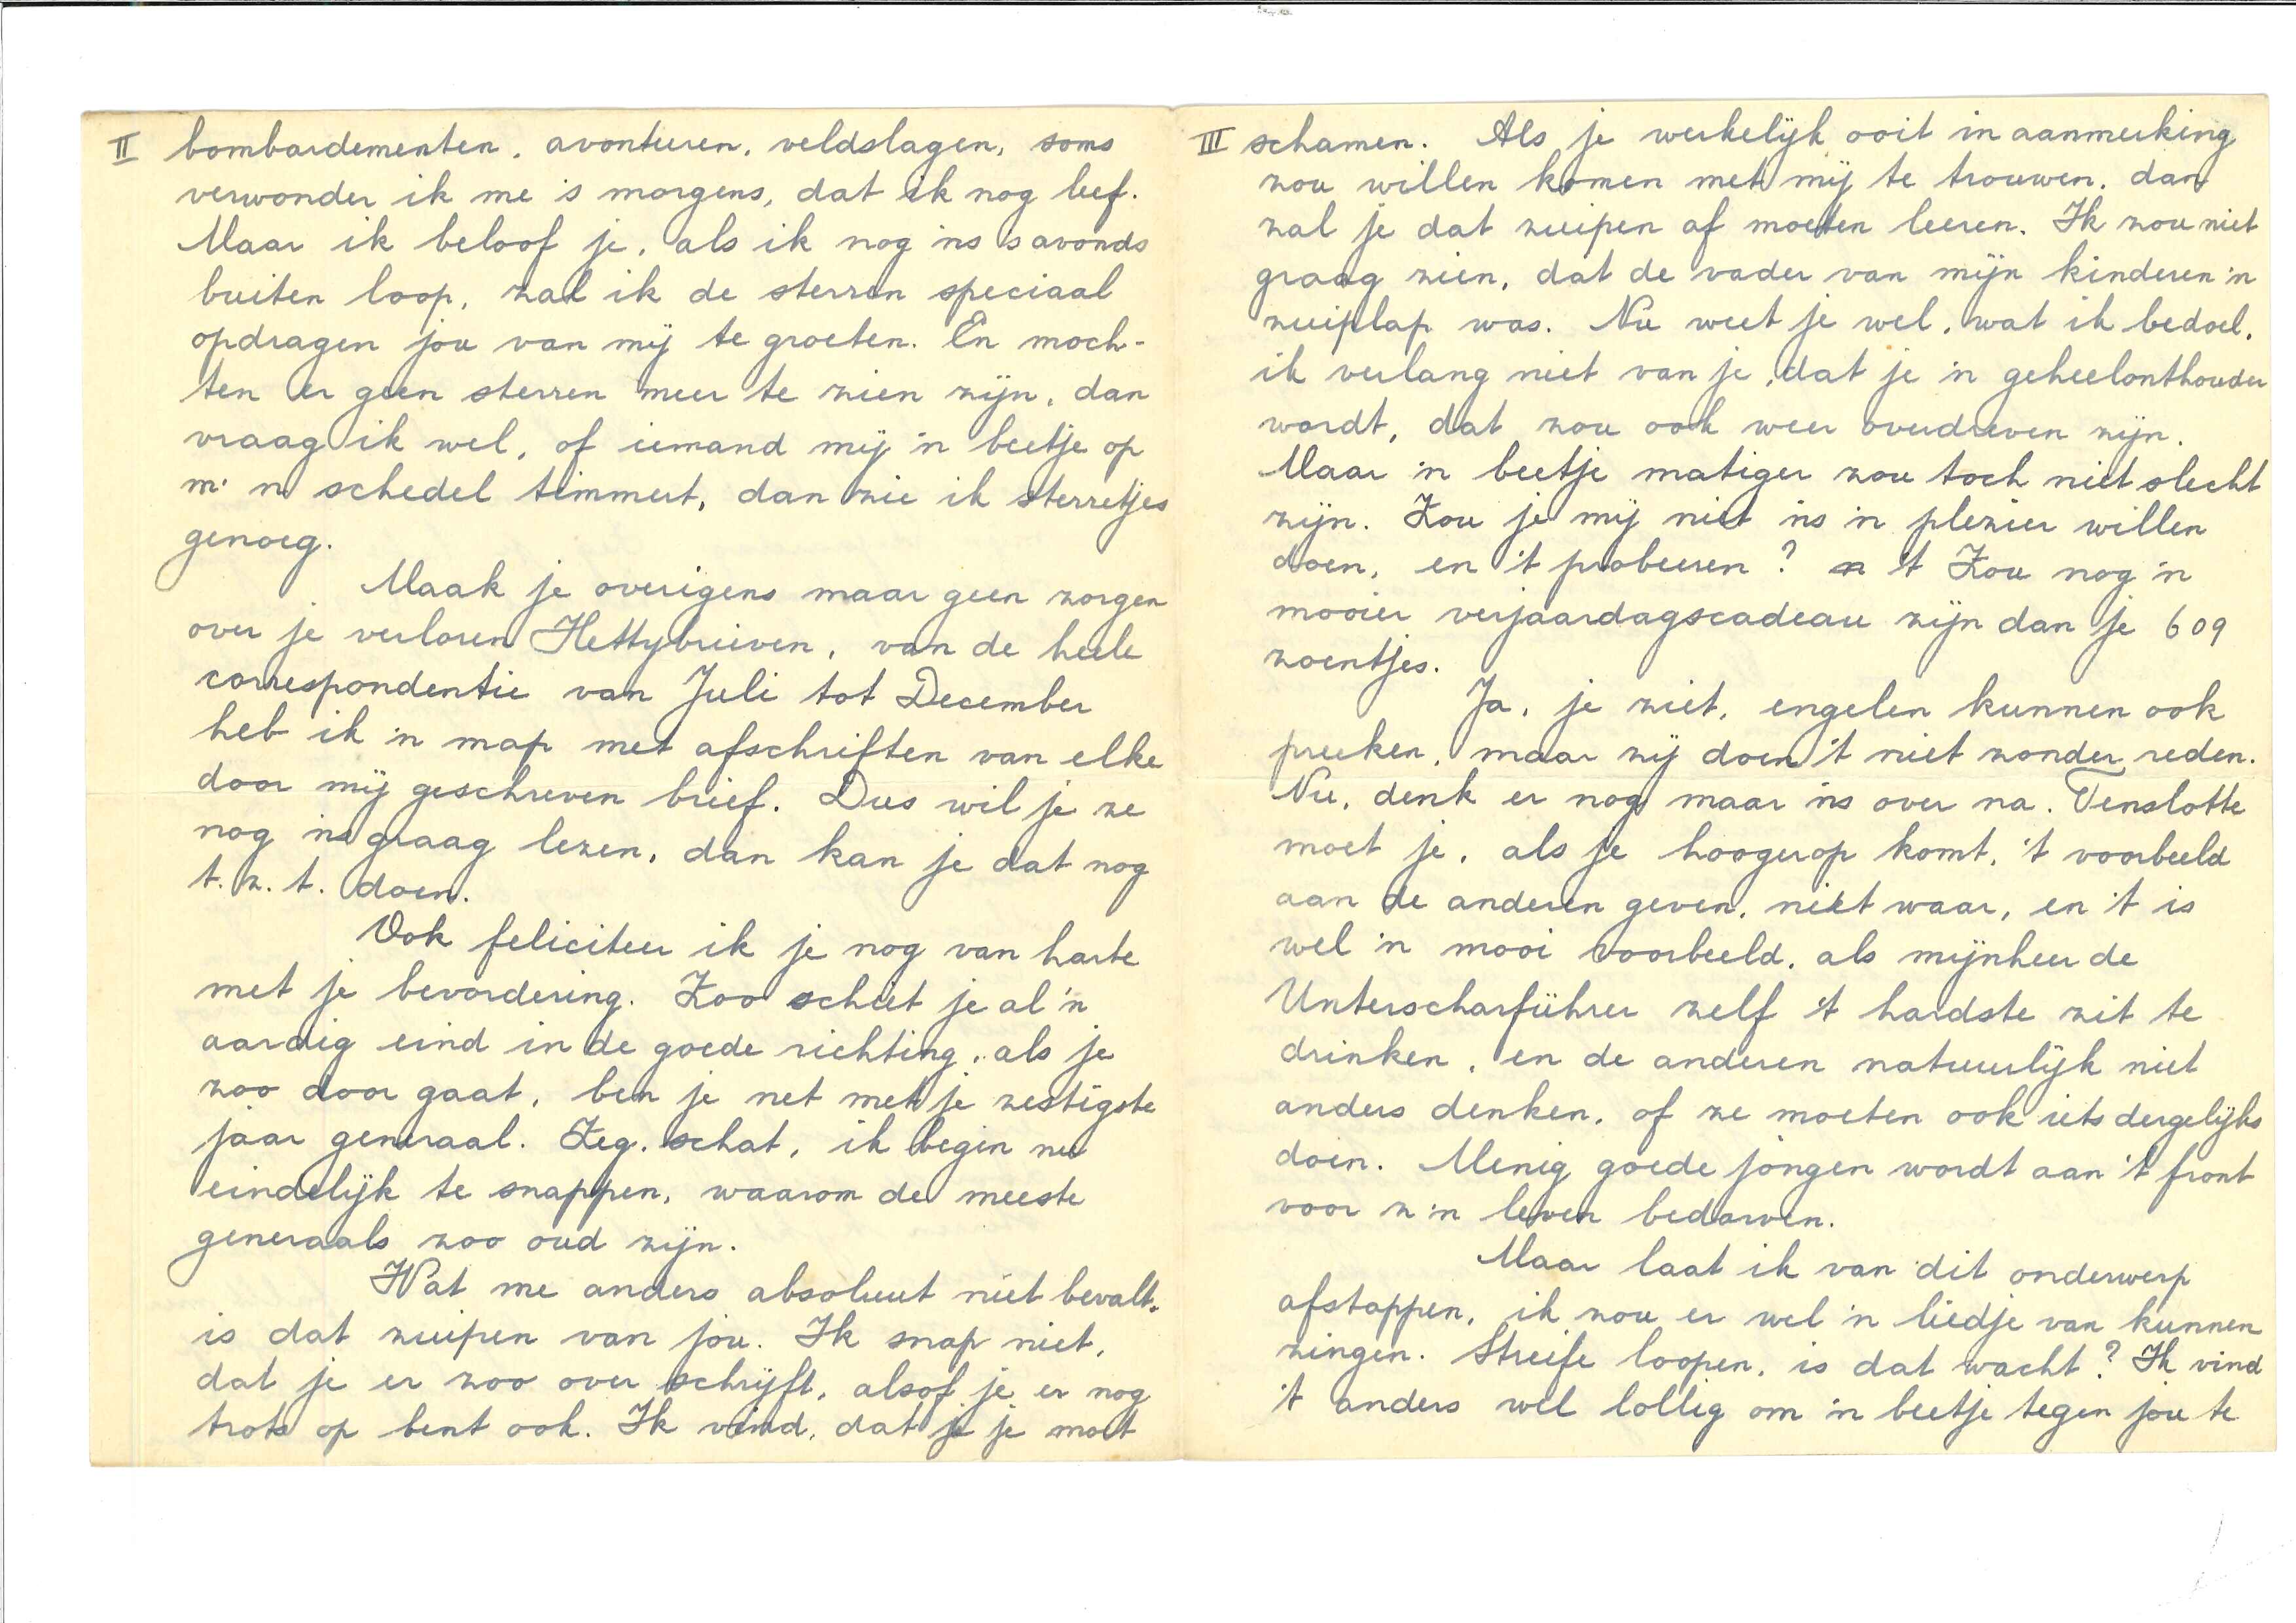 II bombardementen, avonturen, veldslagen, soms
verwonder ik me 's morgens, dat ik nog leef.
Maar ik beloof je, als ik nog 'ns 's avonds
buiten loop, zal ik de sterren speciaal
opdragen jou van mij te groeten. En moch-
ten er geen sterren meer te zien zijn, dan
vraag ik wel, of iemand mij 'n beetje op
m'n schedel timmert, dan zie ik sterretjes
genoeg.
Maak je overigens maar geen zorgen
over je verloren Hettybrieven, van de heele
correspondentie van Juli tot December
heb ik 'n map met afschriften van elke
door mij geschreven brief. Dus wil je ze
nog 'ns graag lezen, dan kan je dat nog
t.z.t. doen.
Ook feliciteer ik je nog van harte
met je bevordering. Zoo schiet je al 'n
aardig eind in de goede richting, als je
zoo door gaat, ben je net met je zestigste
jaar generaal. Zeg, schat, ik begin nu
eindelijk te snappen, waarom de meeste
generaals zoo oud zijn.
Wat me anders absoluut niet bevalt,
is dat zuipen van jou. Ik snap niet,
dat je er zoo over schrijft, alsof je er nog
trots op bent ook. Ik vind, dat je je moet
III schamen. Als je werkelijk ooit in aanmerking
zou willen komen met mij te trouwen, dan
zal je dat zuipen af moeten leeren. Ik zou niet
graag zien, dat de vader van mijn kinderen 'n
zuiplap was. Nu weet je wel, wat ik bedoel,
ik verlang niet van je, dat je 'n geheelonthouder
wordt, dat zou ook weer overdreven zijn.
Maar 'n beetje matiger zou toch niet slecht
zijn. Zou je mij niet 'ns 'n plezier willen
doen, en 't probeeren? 't Zou nog 'n
mooier verjaardagscadeau zijn dan je 609
zoentjes.
Ja, je ziet, engelen kunnen ook
preeken, maar zij doen 't niet zonder reden.
Nu, denk er nog maar 'ns over na. Tenslotte
moet je, als je hoogerop komt, 't voorbeeld
aan de anderen geven, niet waar, en 't is
wel 'n mooi voorbeeld, als mijnheer de
Unterscharführer zelf 't hardste zit te
drinken, en de anderen natuurlijk niet
anders denken, of ze moeten ook iets dergelijks
doen. Menig goede jongen wordt aan 't front
voor z'n leven bedorven.
Maar laat ik van dit onderwerp
afstappen, ik zou er wel 'n liedje van kunnen
zingen. Streife loopen, is dat wacht? Ik vind
't anders wel lollig om 'n beetje tegen jou te